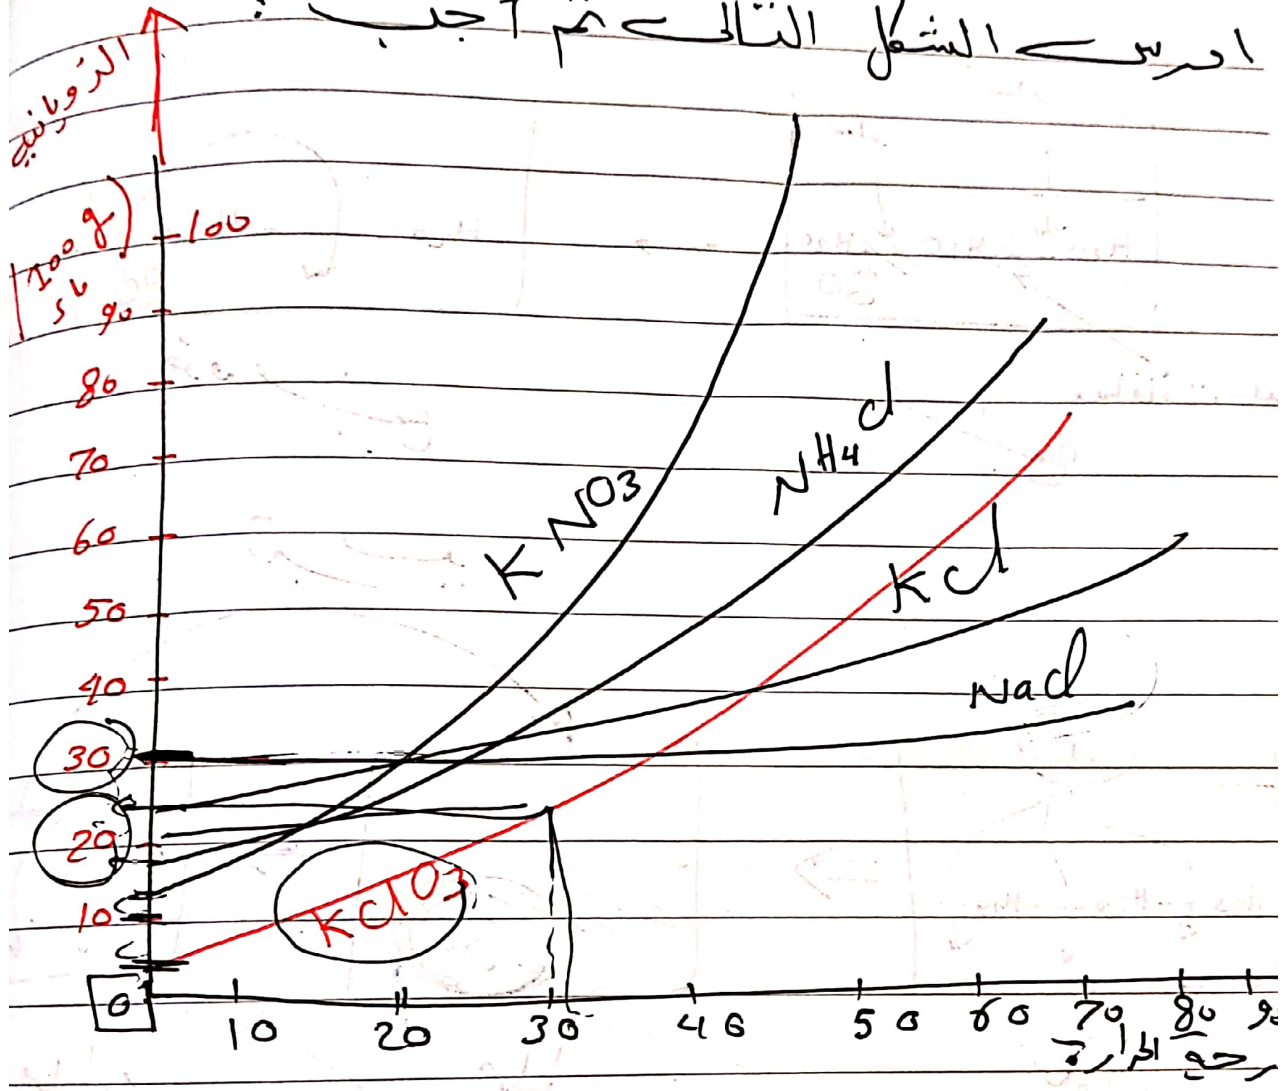 ادرس الشكل التالي ثم أجب :
الذوبانية
100 g
100
90
80
70
60
50
40
30
20
10
0
KNO3
NH4Cl
KCl
NaCl
KClO3
10 20 30 40 50 60 70 80 90
درجة الحرارة